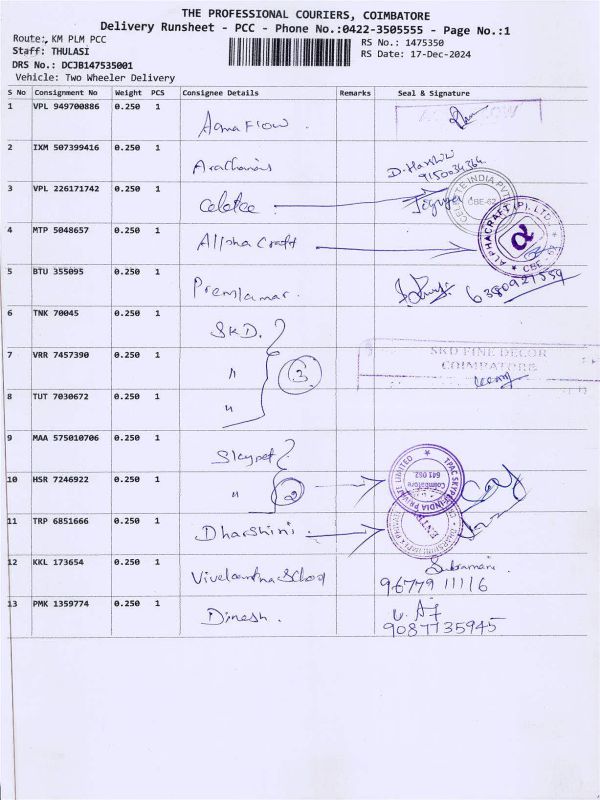 THE PROFESSIONAL COURIERS, COIMBATORE
Delivery Runsheet - PCC - Phone No.:0422-3505555 - Page No.:1
Route: KM PLM PCC
RS No.: 1475350
Staff: THULASI
RS Date: 17-Dec-2024
DRS No.: DCJB147535001
Vehicle: Two Wheeler Delivery
S No Consignment No Weight PCS Consignee Details Remarks Seal & Signature
1 VPL 949700886 0.250 1 Aqua Flow
2 IXM 507399416 0.250 1
9150034364
3 VPL 226171742 0.250 1 CBE-62
4 MTP 5048657 0.250 1 Allpha Craft ALPHACRAFT (P) LTD CBE
5 BTU 355095 0.250 1 Premkumar 6380921559
6 TNK 70045 0.250 1 SKD.
7 VRR 7457390 0.250 1 " 3 SKD FINE DECOR
COIMBATORE
8 TUT 7030672 0.250 1 "
9 MAA 575010706 0.250 1 Skypet
10 HSR 7246922 0.250 1 " 2 Coimbatore 641 062
11 TRP 6851666 0.250 1 Dharshini
12 KKL 173654 0.250 1 School Subramani
96779 11116
13 PMK 1359774 0.250 1 Dinesh.
9087735945